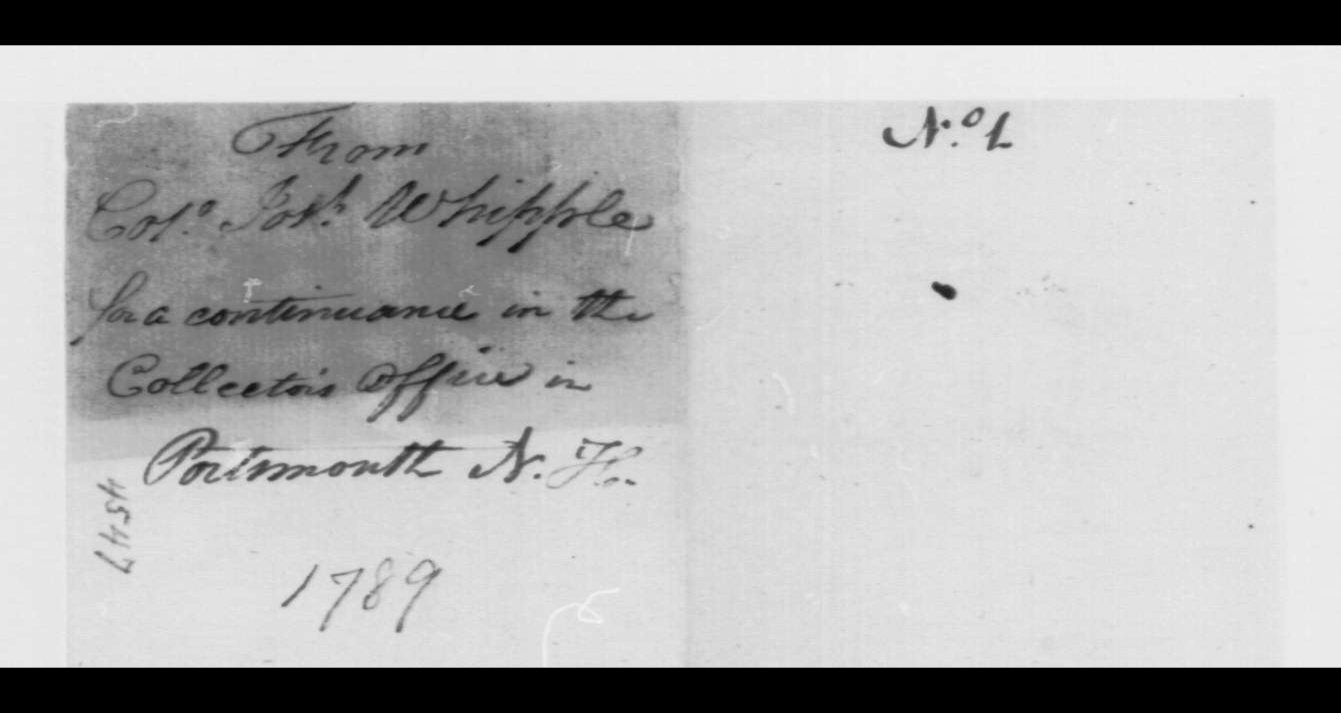 From
Colº. Josh. Whipple
for a continuance in the
Collectors Office in
Portsmouth N. H.
1789
4547
N.º 1